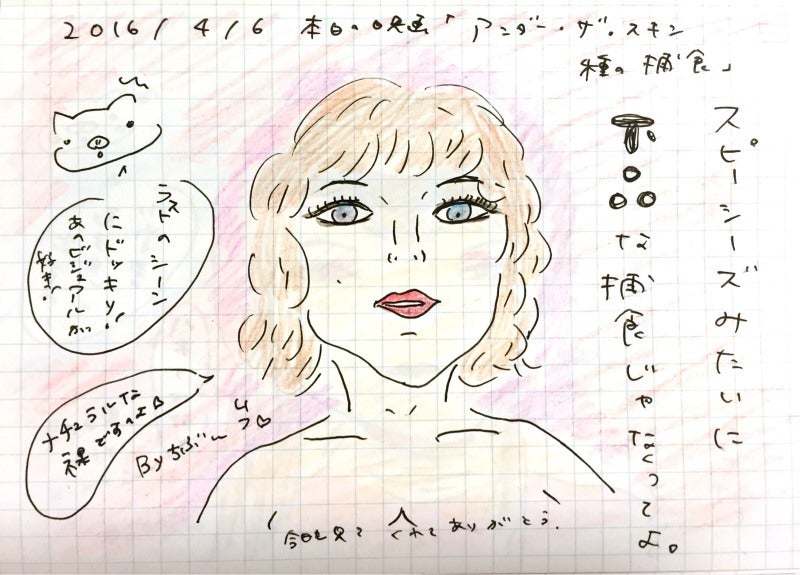 2016/4/6 本日の映画「アンダー・ザ・スキン
種の捕食」
スピーシーズみたいに
下品な捕食じゃなくってよ。
ラストのシーン
にドッキリ!
あのビジュアルが
好き!
ナチュラルな
裸ですのよ
By
今日も見てくれてありがとう.